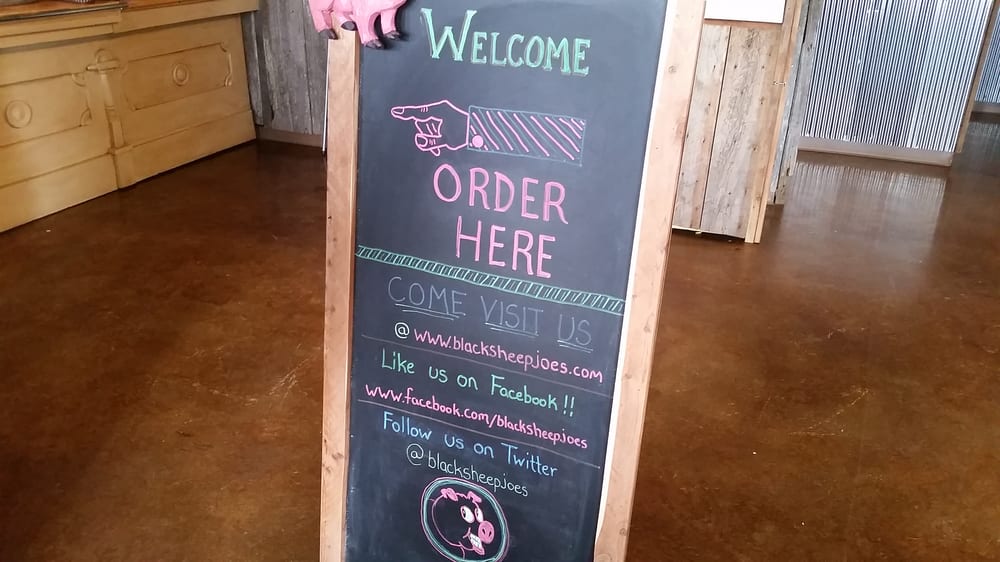 WELCOME
ORDER
HERE
COME VISIT US
@ www.blacksheepjoes.com
Like us on Facebook!!
www.facebook.com/blacksheepjoes
Follow us on Twitter
@blacksheepjoes